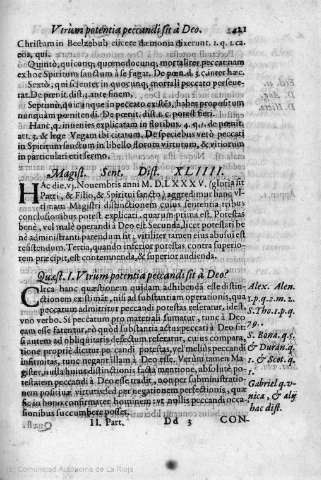 Vtrum potentia peccandi sit à Deo.
Christum in Beelzebub eiicere dæmonia dixerunt. 1. q. 1. ca
nia, qui.
Quintò, quicunq, quomodocunq, mortaliter peccat nam
ex hoc Spiritum sanctum à se fugat. De pœn. d. 3. cáner hæc.
Sextò, qui
tat. De pœnit. dist. 4. ante finem.
Septimò, quicunque in peccato existés, habet propositum
nunquam pœnitendi. De pœnit. dist. 2. c. potest fieri.
Hanc, q, inuenies explicatam in floribus. 4. q. 1. de pœnit.
art. 3. & lege Vegam ibi citatum. De speciebus verò peccati
in Spiritum sanctum in libello florum virtutum, & vitiorum
in particulari etiam
Magist. Sent. Dist. XLIIII.
HAc die, vj, Nouembris anni M.D.LXXXV. (gloria sit
Patri, & Filio, & Spiritui sancto) aggredimur hanc vl-
timam Magistri distinctionem cuius sententia tribus
conclusionibus potest explicari, quarum prima est. Potestas
benè, vel malè operandi à Deo est Secunda, licet potestas be
nè administranti parendum sit, viriliter tamen eius abusui est
resistendum. Tertia, quando inferior potestas contra superio-
rem præcipit, est contemnenda, & superior audienda.
Quæst. I. Vtrum potentia peccandi sit à Deo?
CIrca hanc quæstionem quidam adhibenda esse distin-
ctionem existimát, nisi ad substantiam operationis, qua
peccatum admittitur peccandi potestas referatur, idest,
pro verbo. Si peccatum pro materiali sumatur, tunc à Deo
eam esse fatentur,
si autem ad obliquitatis defectum referatur, cu ius compara
tione propriè dicitur po candi potestas, vel melius peccandi
infirmitas, tunc negant illam à Deo esse. Verùm tamen Ma-
gister, iusta huius distinctionis facta mentione, absolutè po-
testatem peccandi à Deo esse tradit,
nem positiuæ virtutis sed per negationem perfectionis, quæ
scilicet in bono confirmaret hominem: vt nullis peccandi occa-
sionibus succumbere posset.
II. Part.
Dd 3
CON-
Alex. Alen.
1. p. q. 2. m. 2.
S. Tho. 1. p. q.
79.
S. Bona. q. 5.
& Duran. q.
1. & Scot. q.
1.
Gabriel q. v-
nica, & alij
hac dist.
Comunidad Autónoma de La Rioja